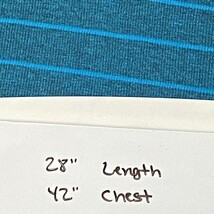 28" Length
42" Chest